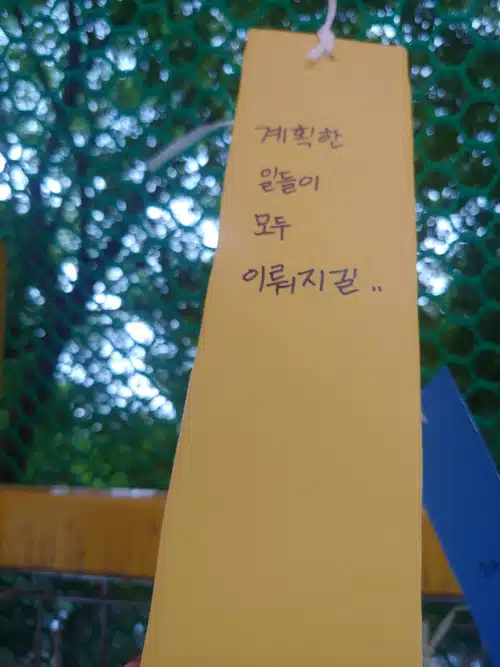 계획한
일들이
모두
이뤄지길..